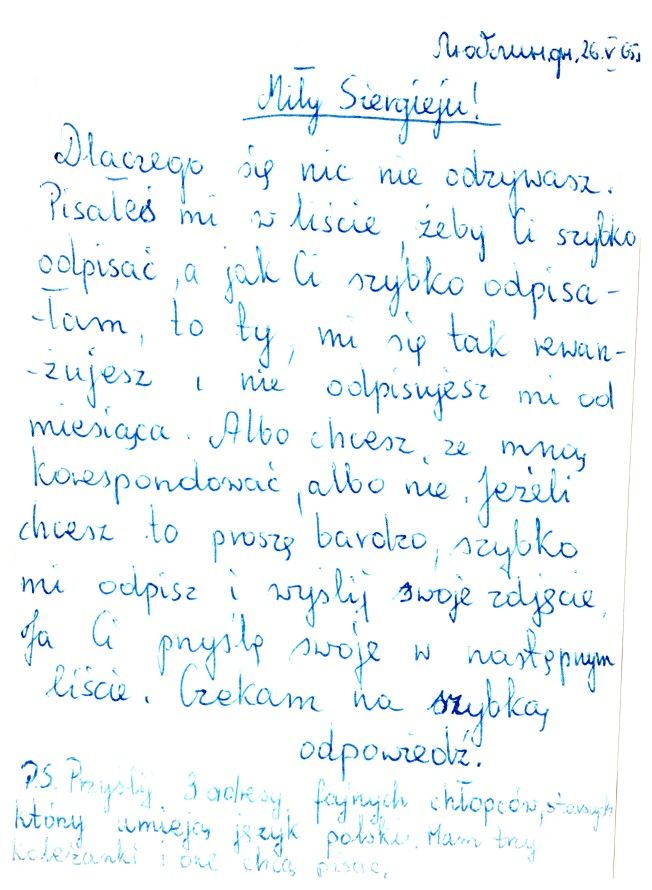 26.V 65.
Miły Siergieju!
Dlaczego się nic nie odzywasz.
Pisałeś mi w liście, żeby Ci szybko
odpisać, a jak Ci szybko odpisa-
-łam, to ty, mi się tak rewan-
-żujesz i nie odpisujesz mi od
miesiąca. Albo chcesz, ze mną
korespondować, albo nie. Jeżeli
chcesz to proszę bardzo, szybko
mi odpisz i wyślij swoje zdjęcie.
Ja Ci pnyślę swoje w następnym
liście. Czekam na szybką
odpowiedź.
P.S. Przyślij 3 adresy fajnych chłopców, starszych
który umieją język polski. Mam trzy
koleżanki i one chcą pisać.